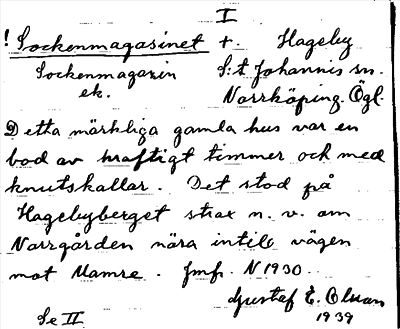 I
! Sockenmagasinet + Hageby
Sockenmagazin S:t Johannis sn.
ek. Norrköping. Ögl.
Detta märkliga gamla hus var en
bod av kraftigt timmer och med
knutskallar. Det stod på
Hagebyberget strax n. v. om
Norrgården nära intill vägen
mot Mamre. Jmfr. N 1930.
Gustaf E. Olsson
1939
Se II